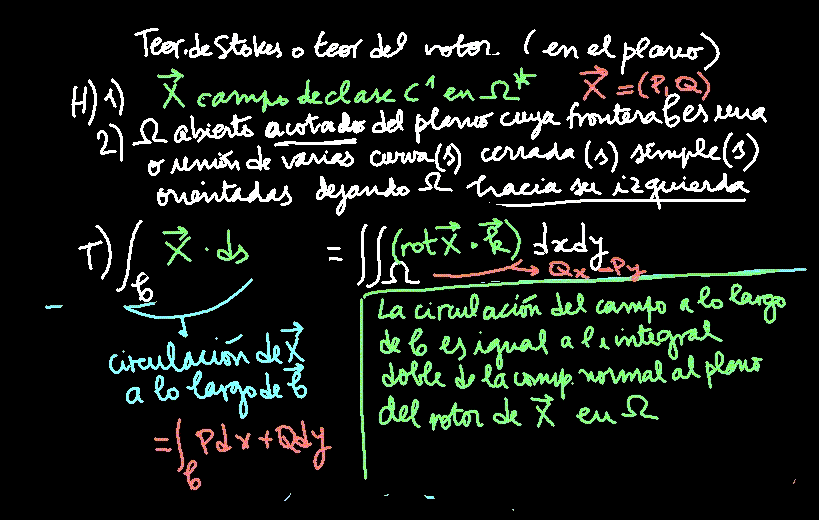 Teor. de Stokes o teor del rotor (en el plano)
H) 1) X⃗ campo de clase C¹ en Ω* X⃗ = (P, Q)
2) Ω abierto acotado del plano cuya frontera C es una
o unión de varias curva(s) cerrada(s) simple(s)
orientadas dejando Ω hacia su izquierda
T) ∫_C X⃗ · ds = ∬_Ω (rot X⃗ · k⃗) dxdy
→ Qx - Py
circulación de X⃗
a lo largo de C⃗
= ∫_C Pdx + Qdy
La circulación del campo a lo largo
de C es igual a la integral
doble de la comp. normal al plano
del rotor de X⃗ en Ω